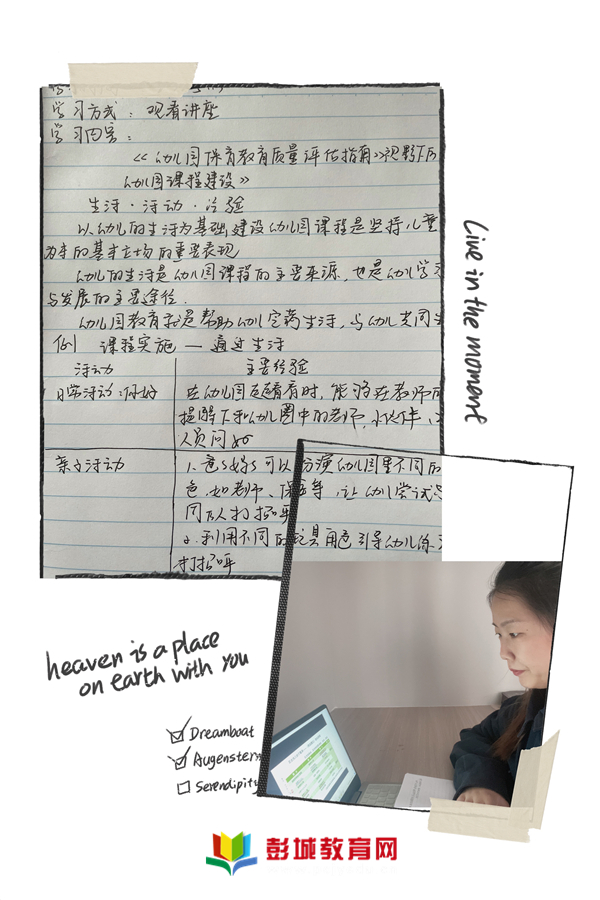 学习方式：观看讲座
学习内容：
《幼儿园保育教育质量评估指南》视野下的
幼儿园课程建设》
生活·活动·经验
以幼儿的生活为基础建设幼儿园课程是坚持儿童
为本的基本立场的重要表现
幼儿的生活是幼儿园课程的主要来源，也是幼儿学习
与发展的主要途径.
幼儿园教育就是帮助幼儿完善生活，与幼儿共同生
例 课程实施 — 通过生活
活动 主要经验
日常活动：你好 在幼儿园 有时，能够在教师的
提醒下和幼儿园中的老师、小伙伴、
人员问好
亲子活动 1.爸妈可以扮演幼儿园里不同的
色，如老师、保 等，让幼儿尝试与
同的人打招呼
2.利用不同的玩具角色引导幼儿练习
打招呼
Live in the moment
heaven is a place
on earth with you
Dreamboat
Augenstern
Serendipity
彭城教育网